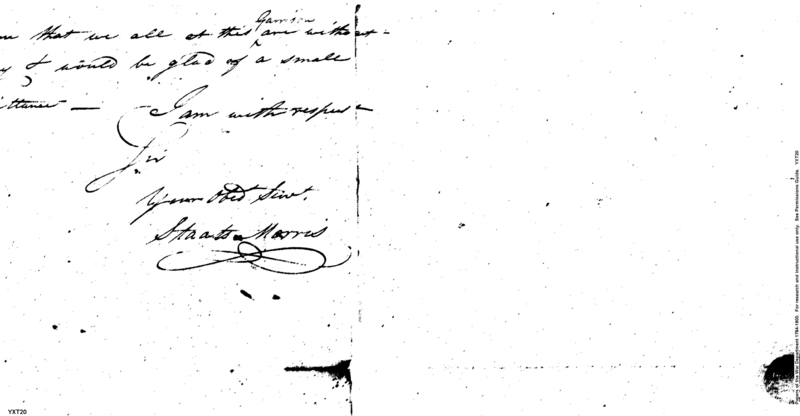 that we all at this Garrison are without -
I would be glad of a small
ittance — I am with respect
Sir
Your Obed.t Serv.t
Staats Morris
YXT20
Papers of the War Department 1784-1800. For research and instructional use only. See Permissions Guide. YXT20